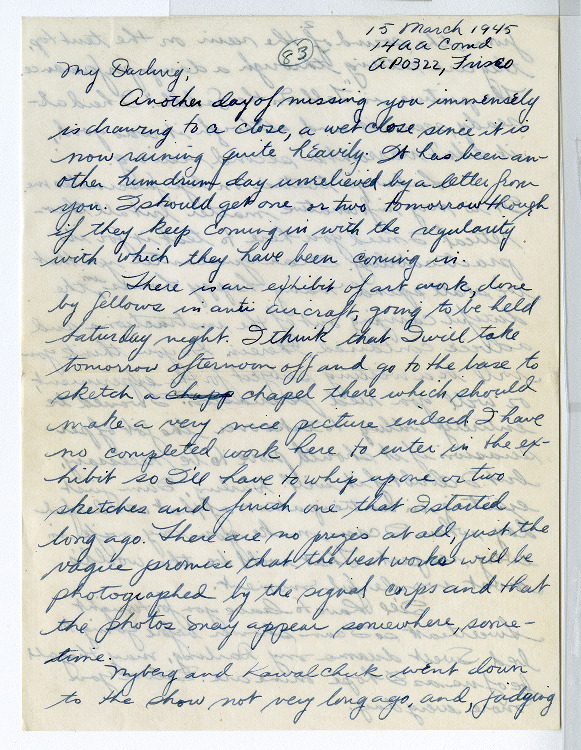 15 March 1945
83
14 AA Comd
My Darling;
APO 322, Frisco
Another day of missing you immensely
is drawing to a close, a wet close since it is
now raining quite heavily. It has been an-
other humdrum day unrelieved by a letter from
you. I should get one or two tomorrow though
if they keep coming in with the regularity
with which they have been coming in.
There is an exhibit of art work, done
by fellows in anti aircraft, going to be held
Saturday night. I think that I will take
tomorrow afternoon off and go to the base to
sketch a chapp chapel there which should
make a very nice picture indeed. I have
no completed work here to enter in the ex-
hibit so I'll have to whip up one or two
sketches and finish one that I started
long ago. There are no prizes at all, just the
vague promise that the best works will be
photographed by the signal corps and that
the photos may appear somewhere, some-
time.
Nyberg and Kawalchuk went down
to the show not very long ago, and, judging